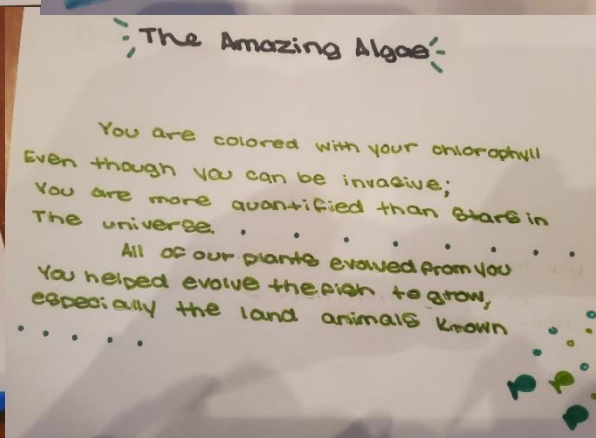 The Amazing Algae
You are colored with your chlorophyll
Even though you can be invasive;
You are more quantified than stars in
The universe.
All of our plants evolved from you
You helped evolve the fish to grow,
especially the land animals known